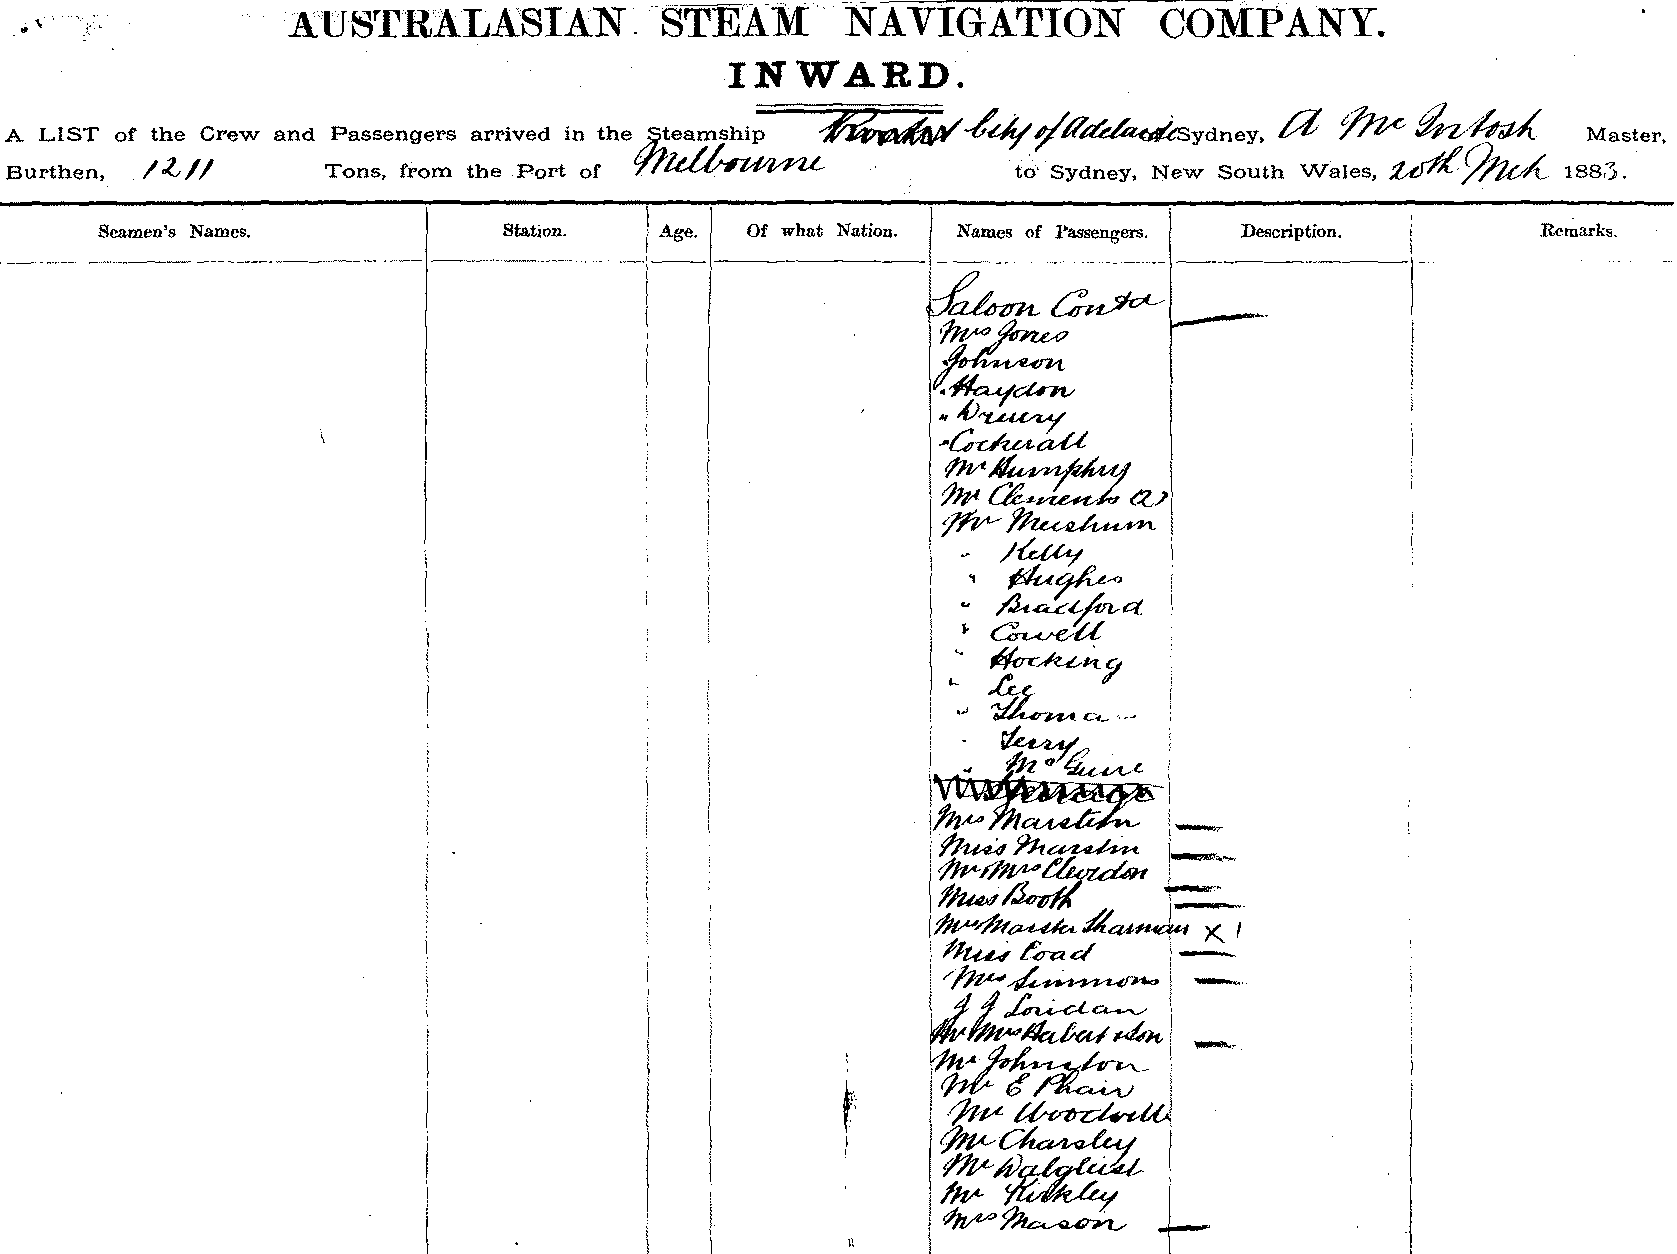 AUSTRALASIAN STEAM NAVIGATION COMPANY.
INWARD.
A LIST of the Crew and Passengers arrived in the Steamship City of Adelaide Sydney, A McIntosh Master,
Burthen, 1211 Tons, from the Port of Melbourne to Sydney, New South Wales, 20th Mch 1883.
Seamen's Names. Station. Age. Of what Nation. Names of Passengers. Description. Remarks.
Saloon Contd
Mrs Jones
Johnson
" Haydon
" Drewry
" Cockerall
Mr Humphry
Mr Clements (2)
Mr
" Kelly
" Hughes
" Bradford
" Cowell
" Hocking
" Lee
" Thomas
" Terry
" McGuire
Mrs Marstin
Miss Marstin
Mr Mrs Clevedon
Miss Booth
Mrs Master Sharman X 1
Miss Coad
Mrs Simmons
J J Loridan
Mr Mrs Habert & Son
Mr Johnston
Mr E Phair
Mr Woodwell
Mr Charsley
Mr Dalgleist
Mr Kirkley
Mrs Mason